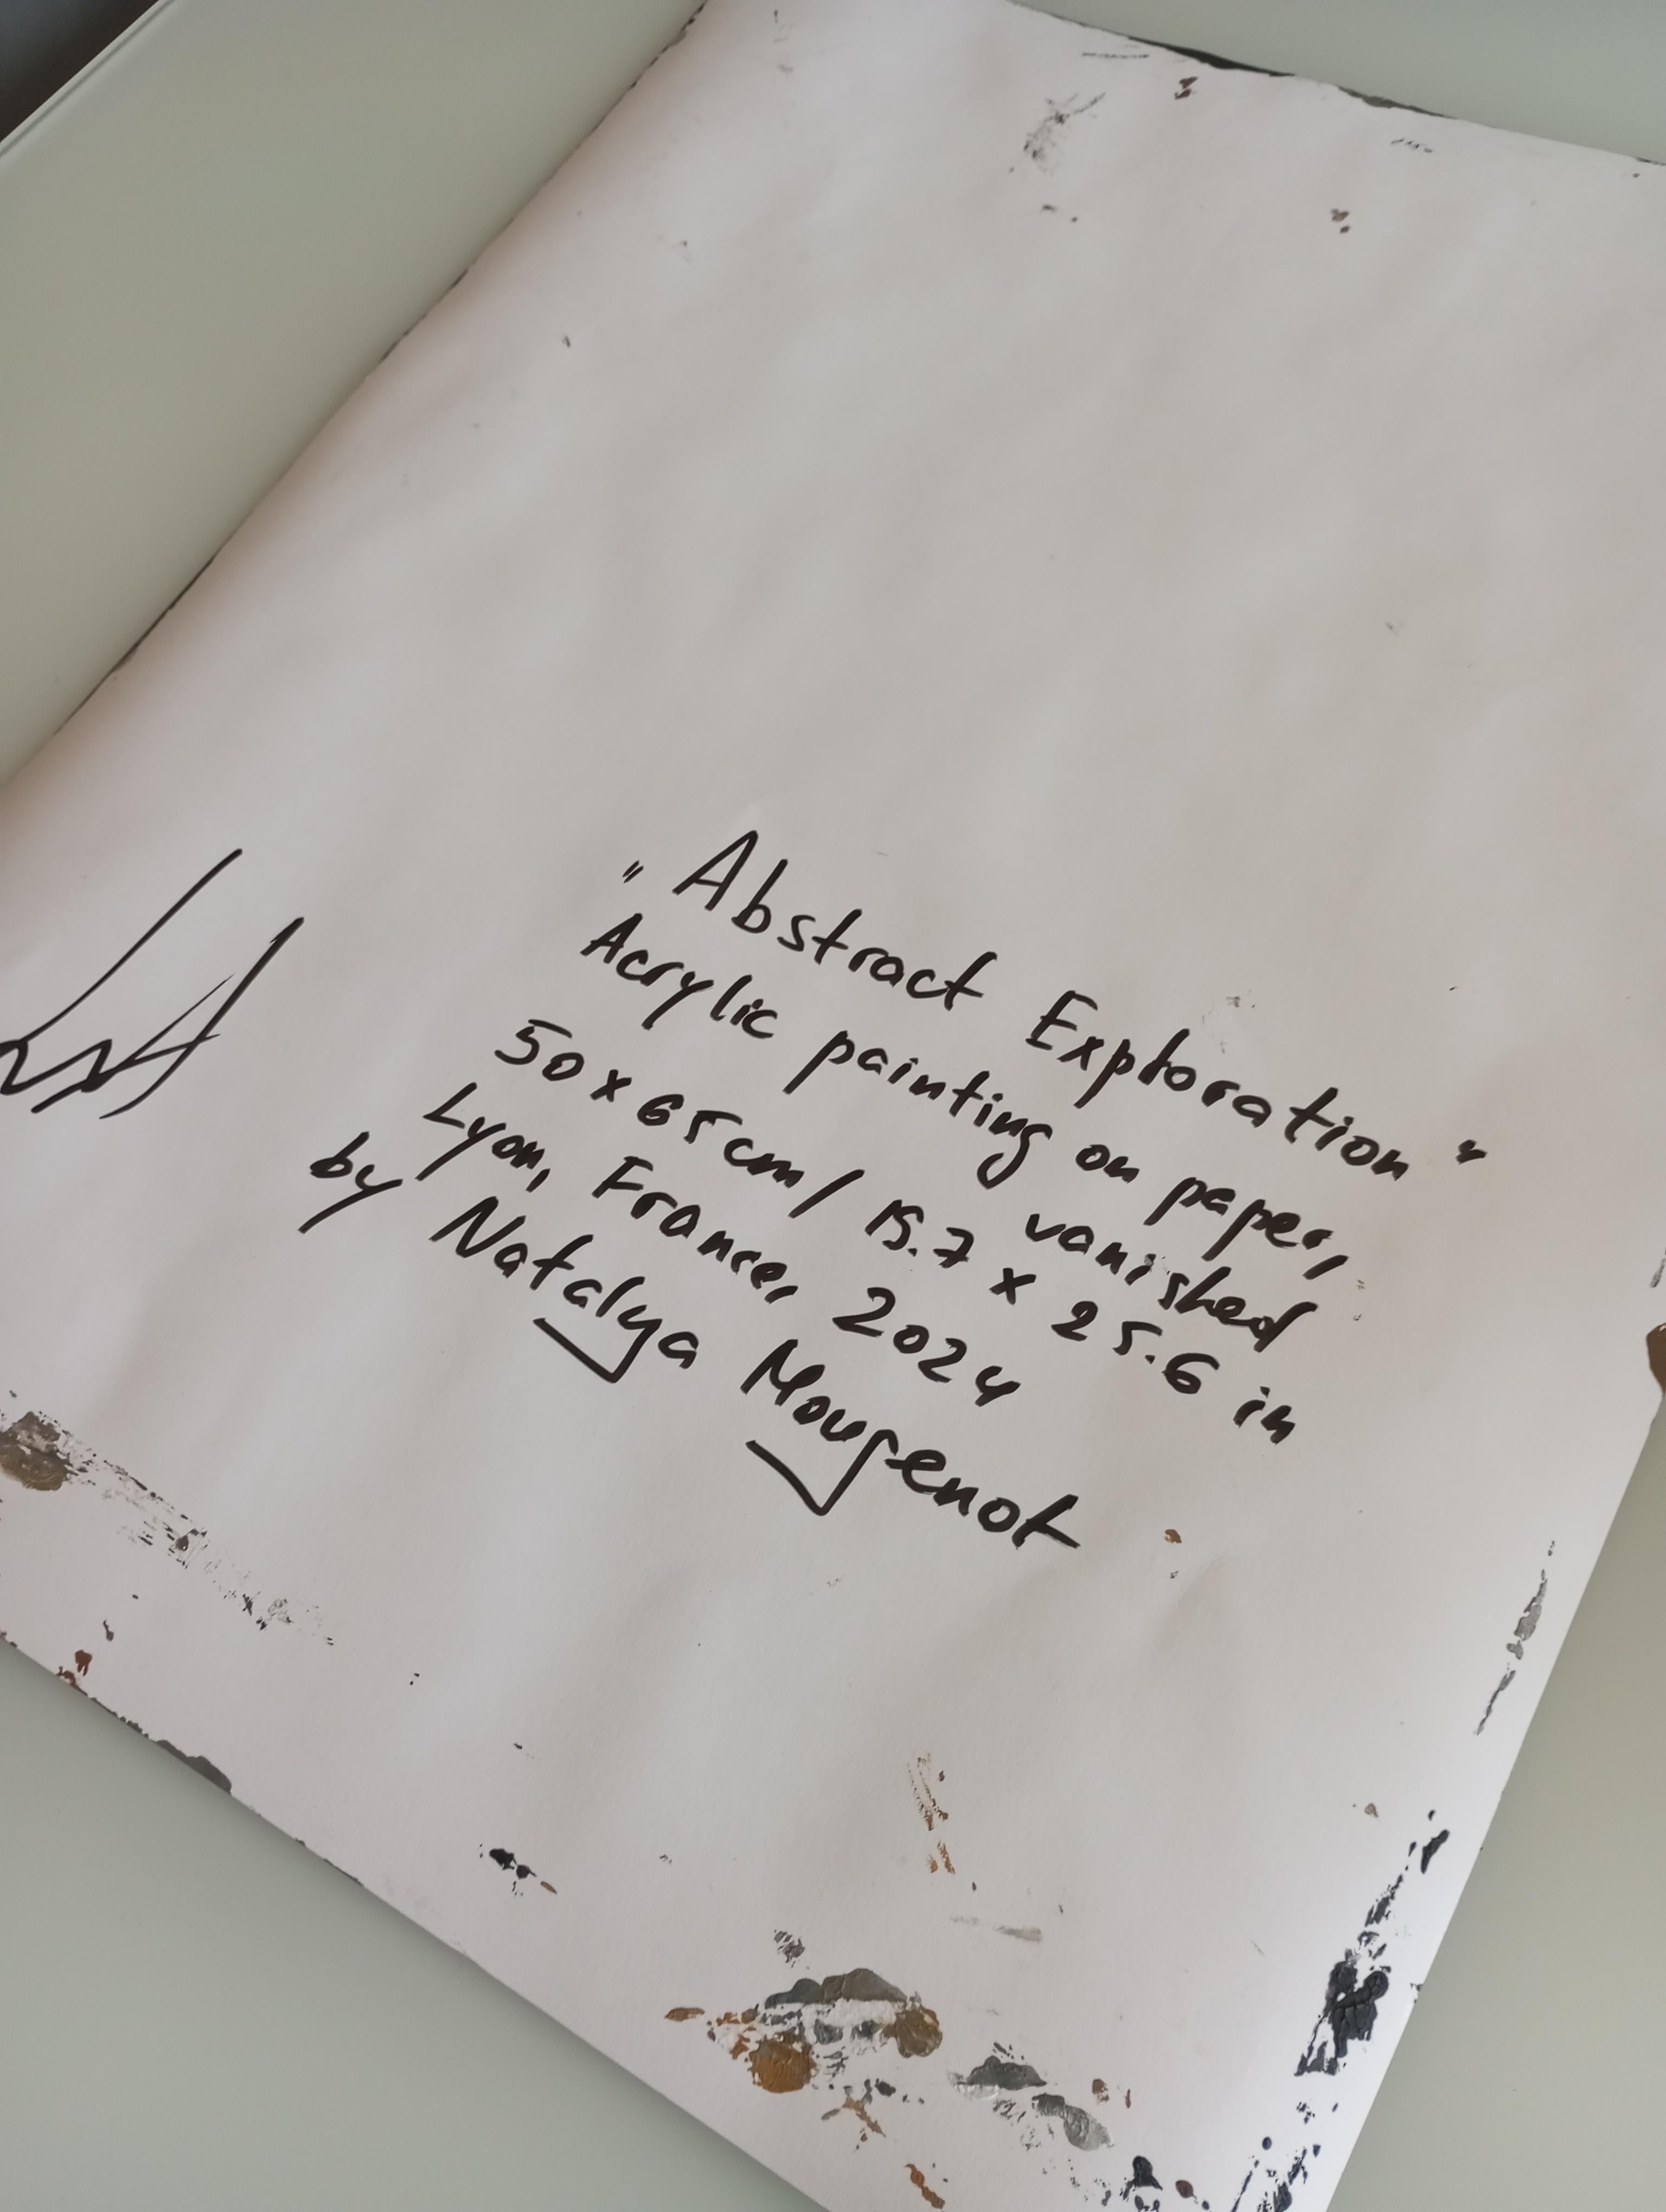 "Abstract Exploration"
Acrylic painting on paper,
vanished
50x65cm/ 15.7 x 25.6 in
Lyon, France, 2024
by Natalya Mougenot